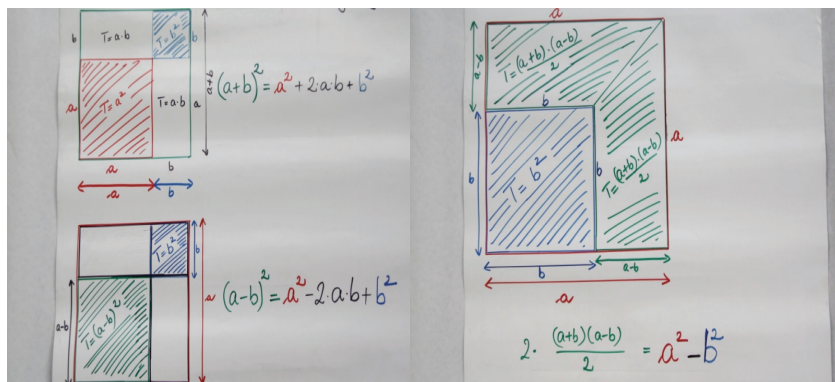 b T=a·b T=b² b
a T=a² T=a·b a
a+b
(a+b)² = a² + 2·a·b + b²
a b
a b
T=b² b
a-b T=(a-b)² a
(a-b)² = a² - 2·a·b + b²
a
a-b T=(a+b)·(a-b)/2
b
b T=b² b T=(a+b)·(a-b)/2 a
b a-b
a
2· (a+b)(a-b)/2 = a² - b²